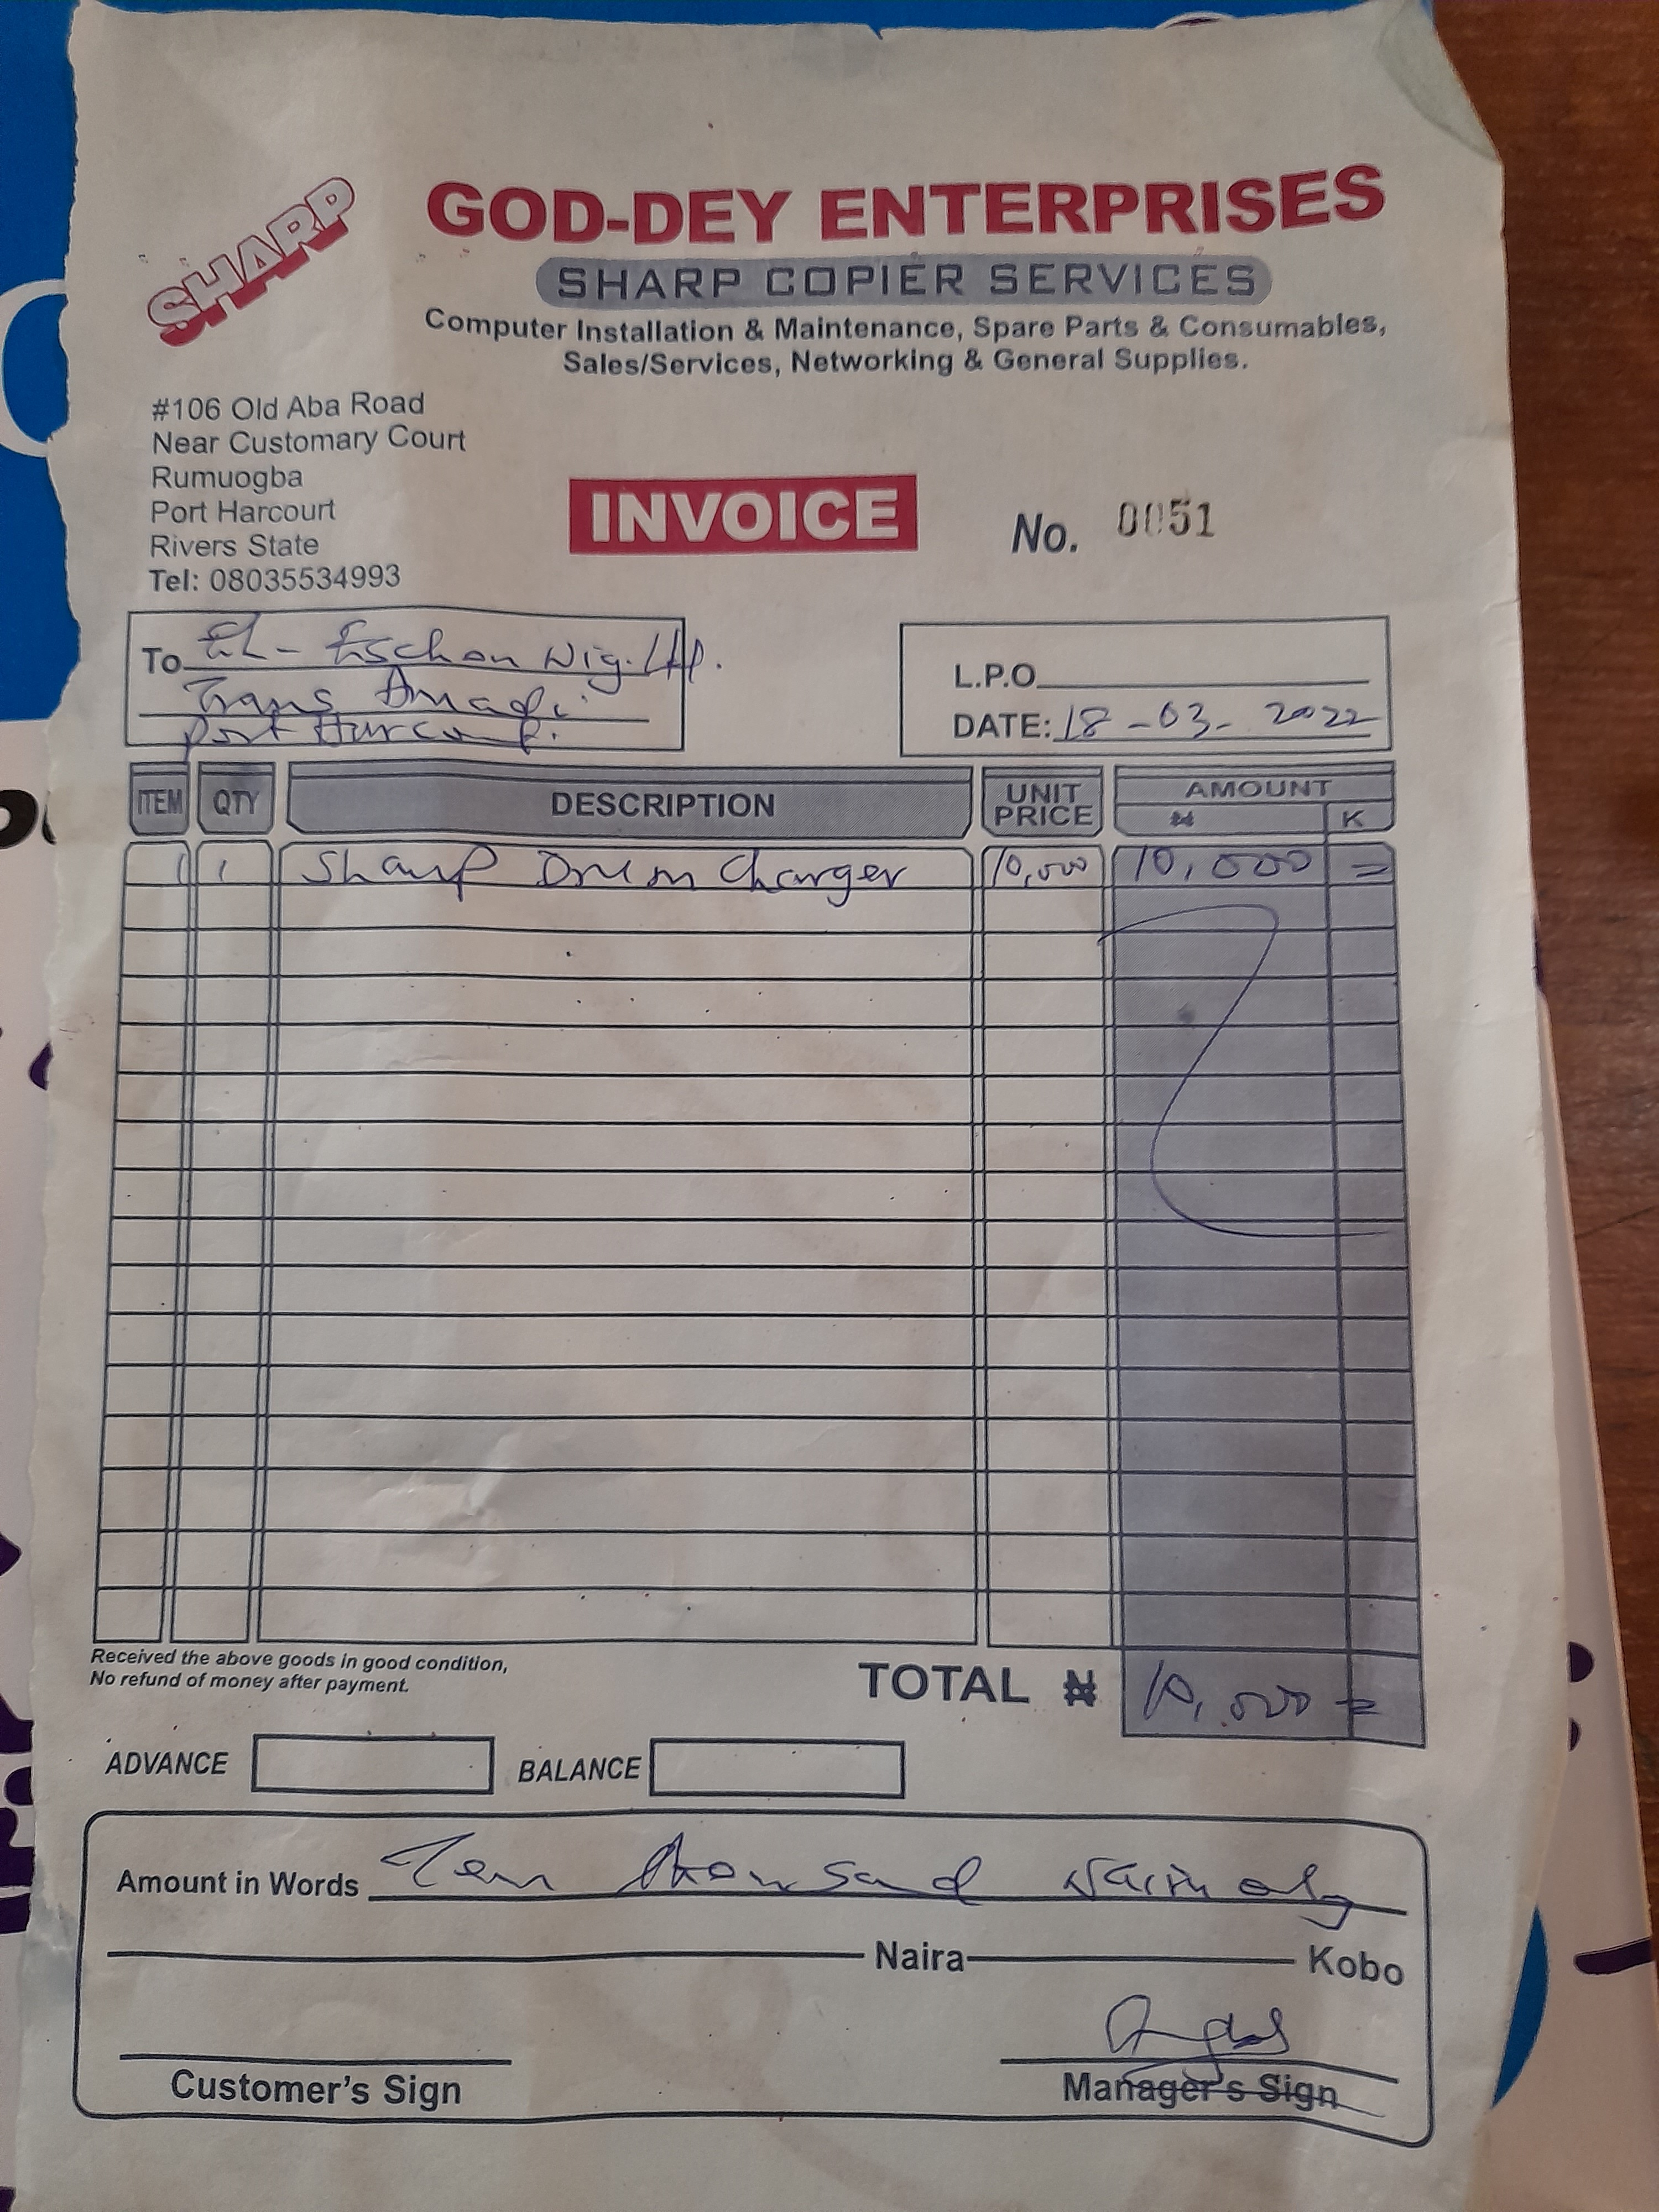 SHARP
GOD-DEY ENTERPRISES
SHARP COPIER SERVICES
Computer Installation & Maintenance, Spare Parts & Consumables,
Sales/Services, Networking & General Supplies.
#106 Old Aba Road
Near Customary Court
Rumuogba
Port Harcourt
Rivers State
Tel: 08035534993
INVOICE
No. 0051
To El-Eschon Nig. Ltd.
Trans Amadi
Port Harcourt.
L.P.O
DATE: 18-03-2022
ITEM QTY DESCRIPTION UNIT PRICE AMOUNT
₦ K
1 1 Sharp Drum Charger 10,000 10,000 =
Received the above goods in good condition,
No refund of money after payment.
TOTAL ₦ 10,000 =
ADVANCE BALANCE
Amount in Words Ten thousand Naira only
Naira Kobo
Customer's Sign Manager's Sign